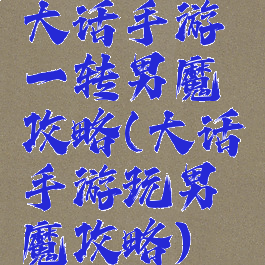 大话手游
一转男魔
攻略(大话
手游玩男
魔攻略)